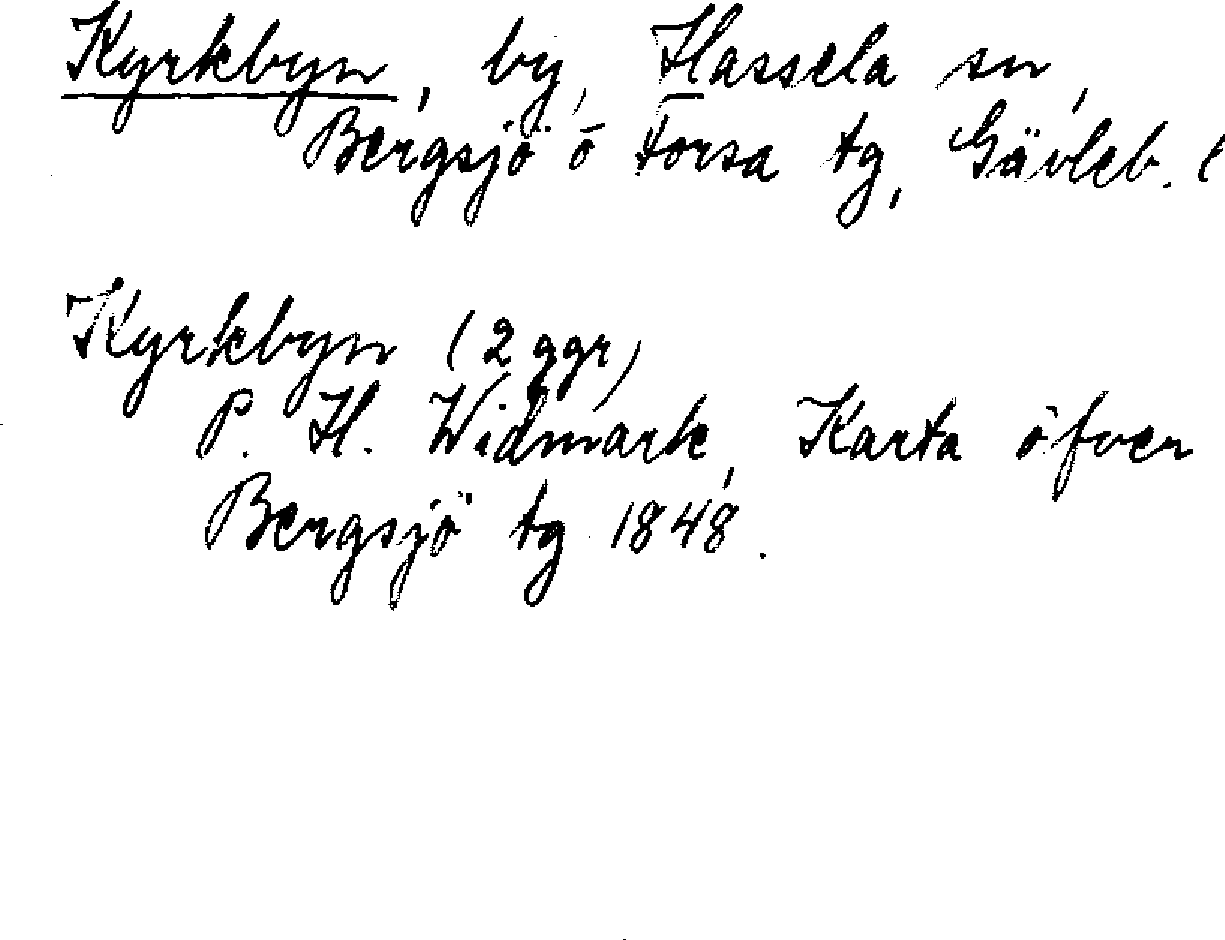 Kyrkbyn, by, Hassela sn,
Bergsjö o Forsa tg, Gävleb. l
Kyrkbyn (2 ggr)
P. H. Widmark, Karta öfver
Bergsjö tg 1848.